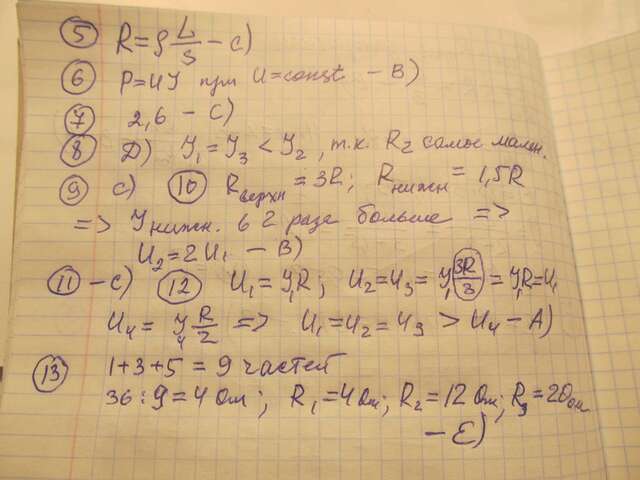 5 R=ρ L/S – C)
6 P=UI при U=const – B)
7 2,6 – C)
8 Д) I₁=I₃<I₂, т.к. R₂ самое мален.
9 C) 10 Rверхн=3R; Rнижн=1,5R
=> Iнижн. в 2 раза больше =>
U₂=2U₁ – B)
11 – C) 12 U₁=I₁R; U₂=U₃=I₁ 3R/3=I₁R=U₁
U₄=I₄ R/2 => U₁=U₂=U₃>U₄ – A)
13 1+3+5=9 частей
36:9=4 Ом; R₁=4 Ом; R₂=12 Ом; R₃=20 Ом
– E)